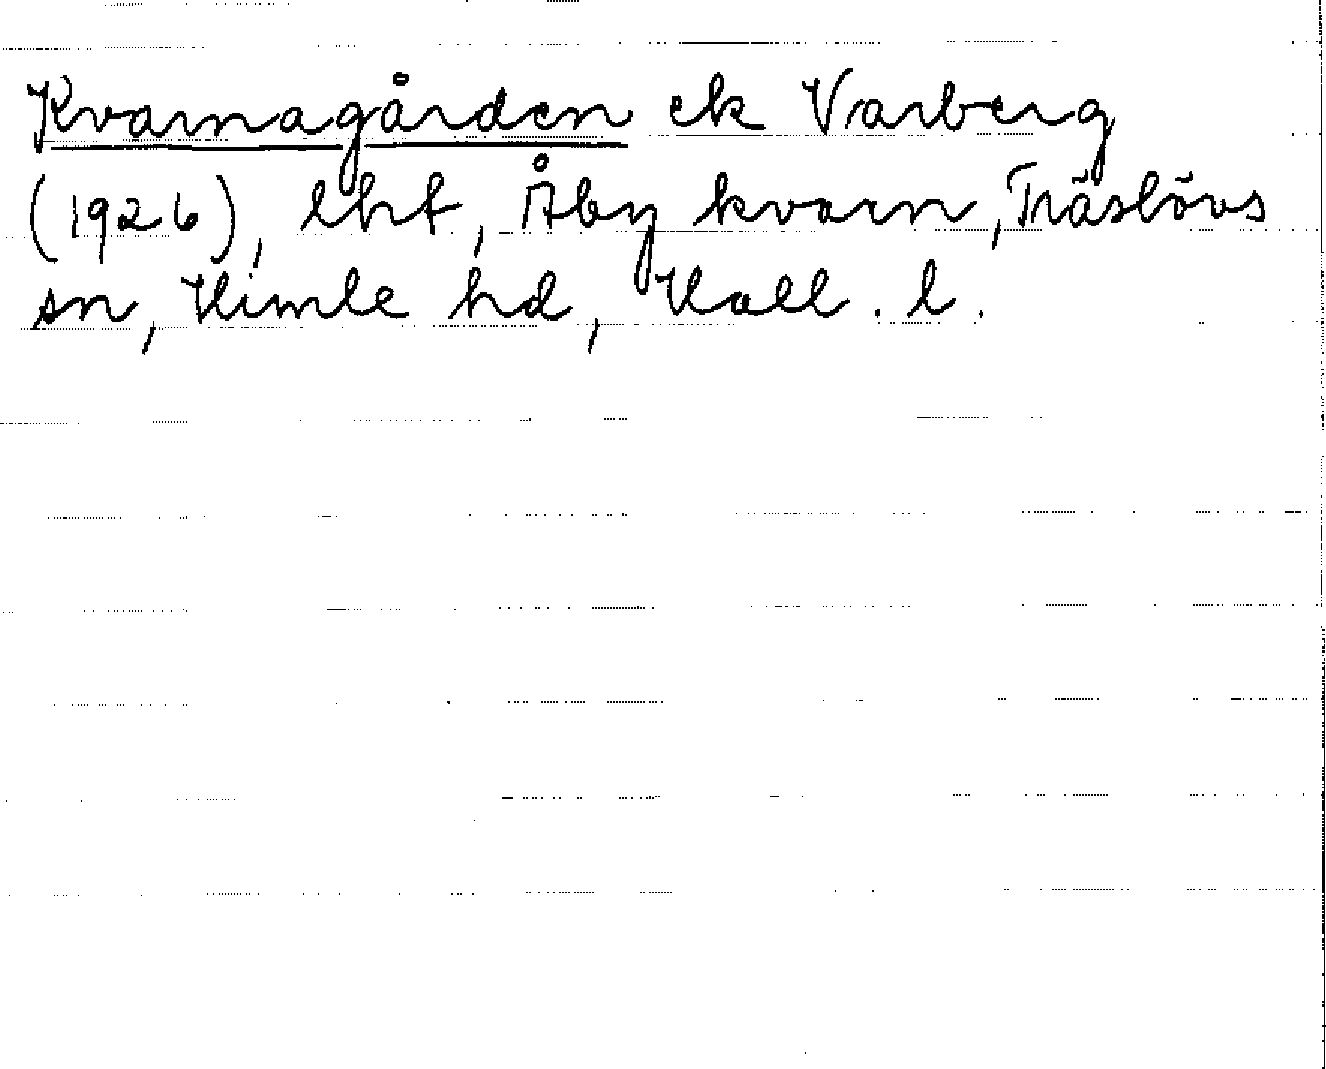 Kvarnagården ek Varberg
(1926), lht, Åby kvarn, Träslövs
sn, Himle hd, Hall. l.